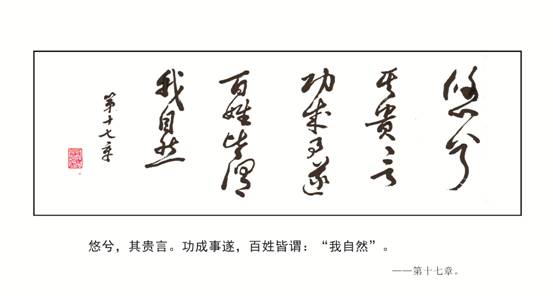 悠兮
其贵言
功成事遂
百姓皆谓
我自然
第十七章
悠兮，其贵言。功成事遂，百姓皆谓：“我自然”。
——第十七章。